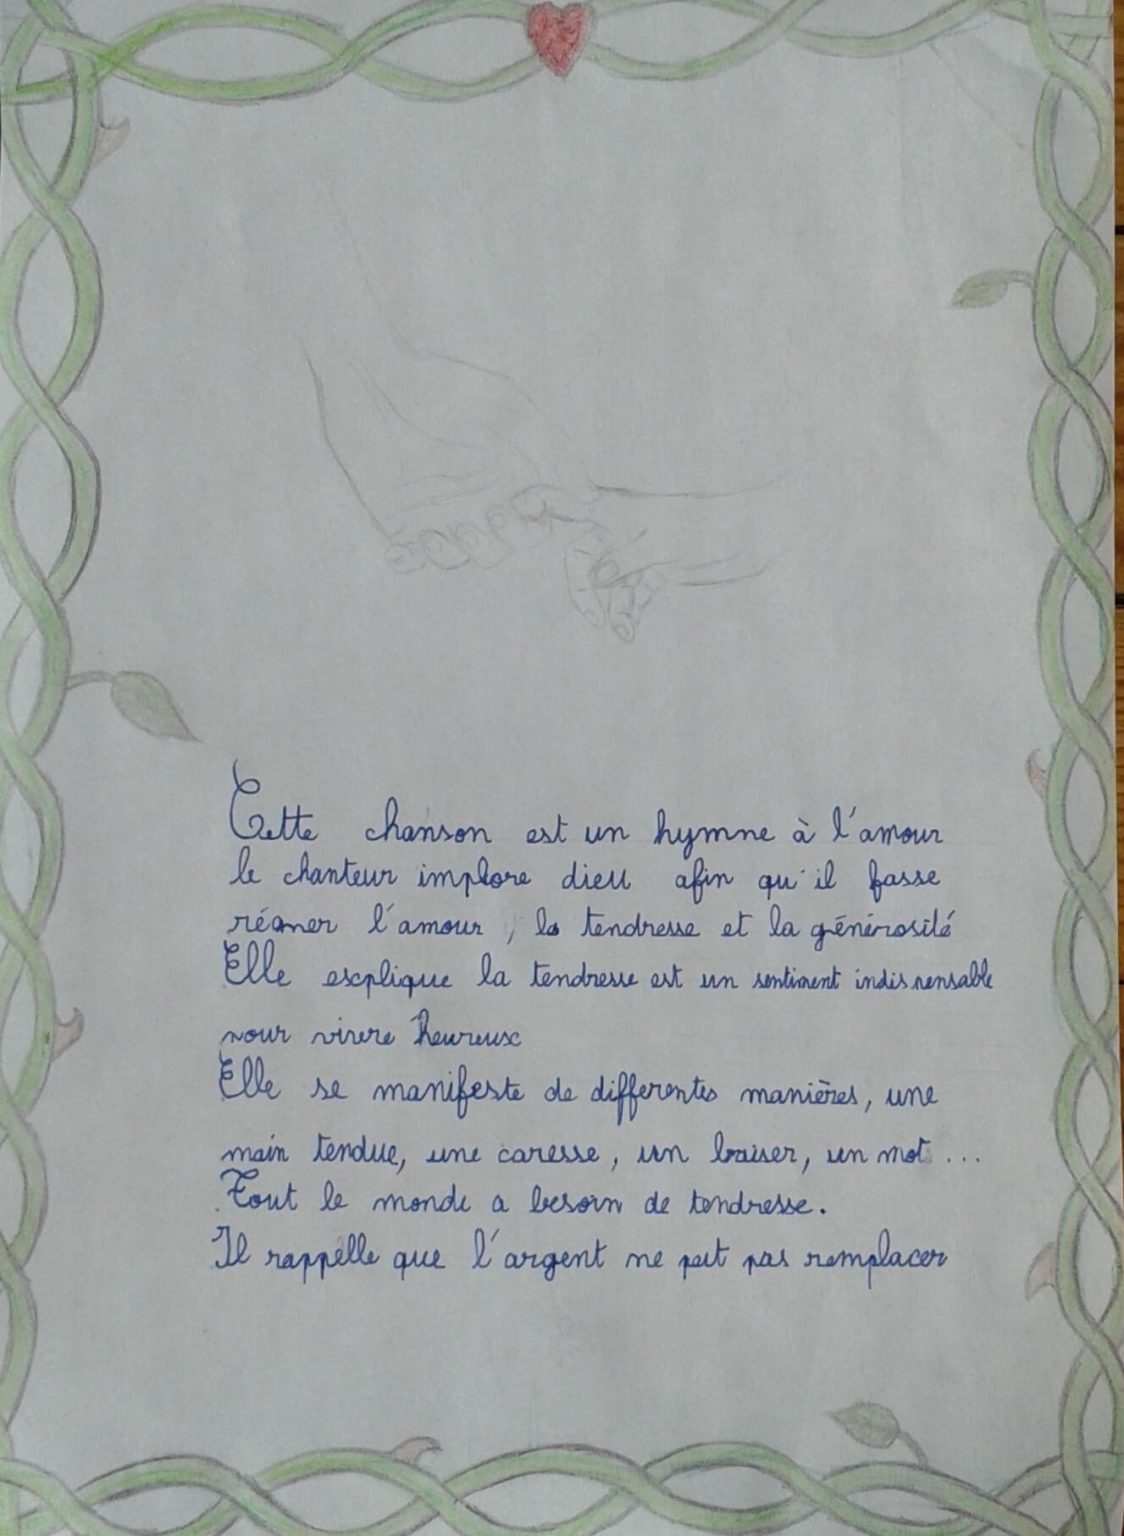 Cette chanson est un hymne à l'amour
le chanteur implore dieu afin qu'il fasse
régner l'amour, la tendresse et la générosité
Elle explique la tendresse est un sentiment indispensable
pour vivre heureux
Elle se manifeste de differentes manières, une
main tendue, une caresse, un baiser, un mot...
Tout le monde a besoin de tendresse.
Il rappelle que l'argent ne peut pas remplacer